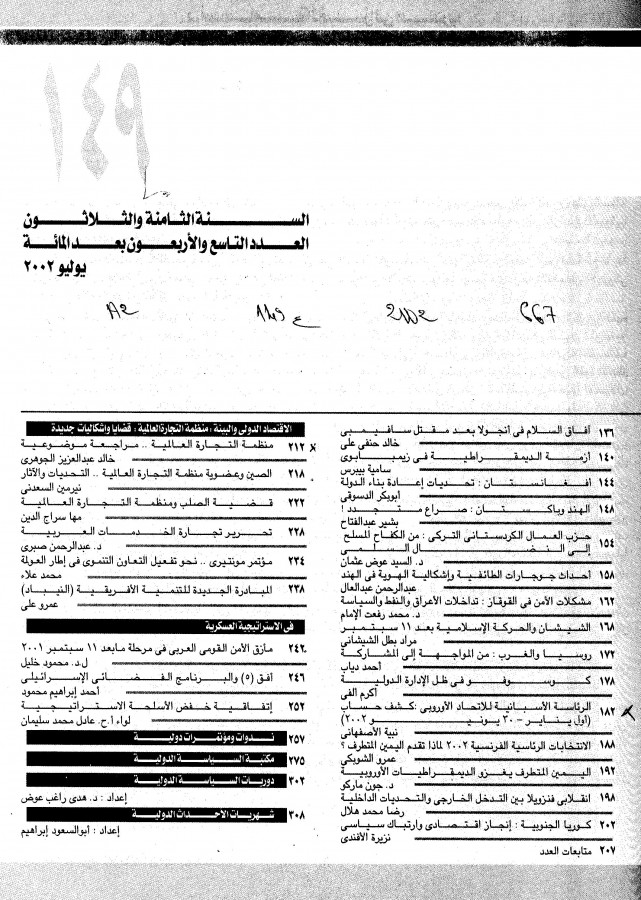 ١٤٩
السنة الثامنة والثلاثون
العدد التاسع والأربعون بعد المائة
يوليو ٢٠٠٢
A2
149 ع
2002
667
١٣٦ آفاق السلام فى أنجولا بعد مقتل سافيمبى
خالد حنفى على
١٤٠ أزمة الديمقراطية فى زيمبابوى
سامية بيبرس
١٤٤ أفغانستان : تحديات إعادة بناء الدولة
أبوبكر الدسوقى
١٤٨ الهند وباكستان : صراع متجدد !
بشير عبدالفتاح
١٥٤ حزب العمال الكردستانى التركى : من الكفاح المسلح
إلى النضال السلمى
د. السيد عوض عثمان
١٥٨ أحداث جوجارات الطائفية وإشكالية الهوية فى الهند
عبدالرحمن عبدالعال
١٦٢ مشكلات الأمن فى القوقاز : تداخلات الأعراق والنفط والسياسة
د. محمد رفعت الإمام
١٦٨ الشيشان والحركة الإسلامية بعد ١١ سبتمبر
مراد بطل الشيشانى
١٧٢ روسيا والغرب : من المواجهة إلى المشاركة
أحمد دياب
١٧٨ كوسوفو فى ظل الإدارة الدولية
أكرم الفى
١٨٢ الرئاسة الأسبانية للاتحاد الأوروبى : كشف حساب
(أول يناير - ٣٠ يونيو ٢٠٠٢)
نبية الأصفهانى
١٨٨ الانتخابات الرئاسية الفرنسية ٢٠٠٢ لماذا تقدم اليمين المتطرف ؟
عمرو الشوبكى
١٩٢ اليمين المتطرف يغزو الديمقراطيات الأوروبية
د. جون ماركو
١٩٨ انقلابى فنزويلا بين التدخل الخارجى والتحديات الداخلية
رضا محمد هلال
٢٠٢ كوريا الجنوبية : إنجاز اقتصادى وارتباك سياسى
نزيرة الأفندى
٢٠٧ متابعات العدد
الاقتصاد الدولى والبيئة : منظمة التجارة العالمية : قضايا وإشكاليات جديدة
٢١٢ منظمة التجارة العالمية .. مراجعة موضوعية
خالد عبدالعزيز الجوهرى
٢١٨ الصين وعضوية منظمة التجارة العالمية .. التحديات والآثار
نيرمين السعدنى
٢٢٢ قضية الصلب ومنظمة التجارة العالمية
مها سراج الدين
٢٢٨ تحرير تجارة الخدمات العربية
د. عبدالرحمن صبرى
٢٣٤ مؤتمر مونتيرى .. نحو تفعيل التعاون التنموى فى إطار العولة
محمد علاء
٢٣٨ المبادرة الجديدة للتنمية الأفريقية (النيباد)
عمرو على
فى الاستراتيجية العسكرية
٢٤٢ مأزق الأمن القومى العربى فى مرحلة مابعد ١١ سبتمبر ٢٠٠١
ل.د. محمود خليل
٢٤٦ أفق (٥) والبرنامج الفضائى الإسرائيلى
أحمد إبراهيم محمود
٢٥٢ إتفاقية خفض الأسلحة الاستراتيجية
لواء أ.ح. عادل محمد سليمان
٢٥٧ ندوات ومؤتمرات دولية
٢٧٥ مكتبة السياسة الدولية
٣٠٢ دوريات السياسة الدولية
إعداد : د. هدى راغب عوض
٣٠٨ شهريات الاحداث الدولية
إعداد : ابوالسعود إبراهيم